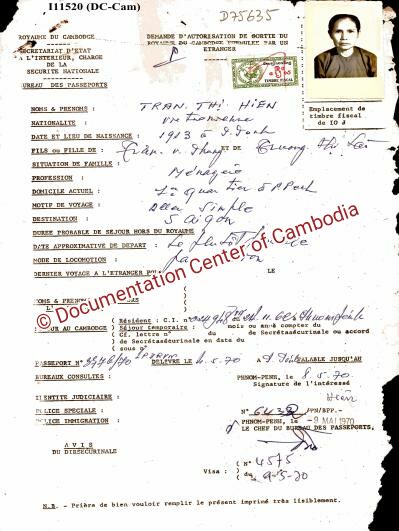 I11520 (DC-Cam)
D75635
ROYAUME DU CAMBODGE
SECRETARIAT D'ETAT
A L'INTERIEUR, CHARGE
DE LA
SECURITE NATIONALE
BUREAU DES PASSEPORTS
DEMANDE D'AUTORISATION DE SORTIE DU
ROYAUME DU CAMBODGE FORMULEE PAR UN
ETRANGER
TIMBRE FISCAL
Emplacement de
timbre fiscal
de 10
NOMS & PRENOMS : TRAN THI HIEN
NATIONALITE : vietnamienne
DATE ET LIEU DE NAISSANCE : 1913 à
FILS ou FILLE de : Trân v. Thang ET DE Truong thi
SITUATION DE FAMILLE :
PROFESSION : Ménagère
DOMICILE ACTUEL : quartier
MOTIF DE VOYAGE : aller simple
DESTINATION : Saigon
DUREE PROBABLE DE SEJOUR HORS DU ROYAUME
DATE APPROXIMATIVE DE DEPART : Le plutôt
MODE DE LOCOMOTION : par
DERNIER VOYAGE A L'ETRANGER LE
NOMS & PRENOMS
© Documentation Center of Cambodia
SEJOUR AU CAMBODGE ( Résident : C.I. n°
( Séjour temporaire : mois ou an à compter du
( CF. lettre n° du de Secrétasdeurie ou accord
( de Secrétasdeurie en date du
( sous n°
PASSEPORT N° 3946/70 DELIVRE LE 4.5.70 A VALABLE JUSQU'AU
BUREAUX CONSULTES : PHNOM-PENH, le 8.5.70
Signature de l'intéressé
Hien
IDENTITE JUDICIAIRE :
POLICE SPECIALE :
POLICE IMMIGRATION :
N° 6432 PPN/BPP.-
PHNOM-PENH, le -9 MAI 1970
LE CHEF DU BUREAU DES PASSEPORTS,
A V I S
DU DIRSECURINALE
Visa : ( N° 4575
( du 9-5-70
N.B. - Prière de bien vouloir remplir le présent imprimé très lisiblement.